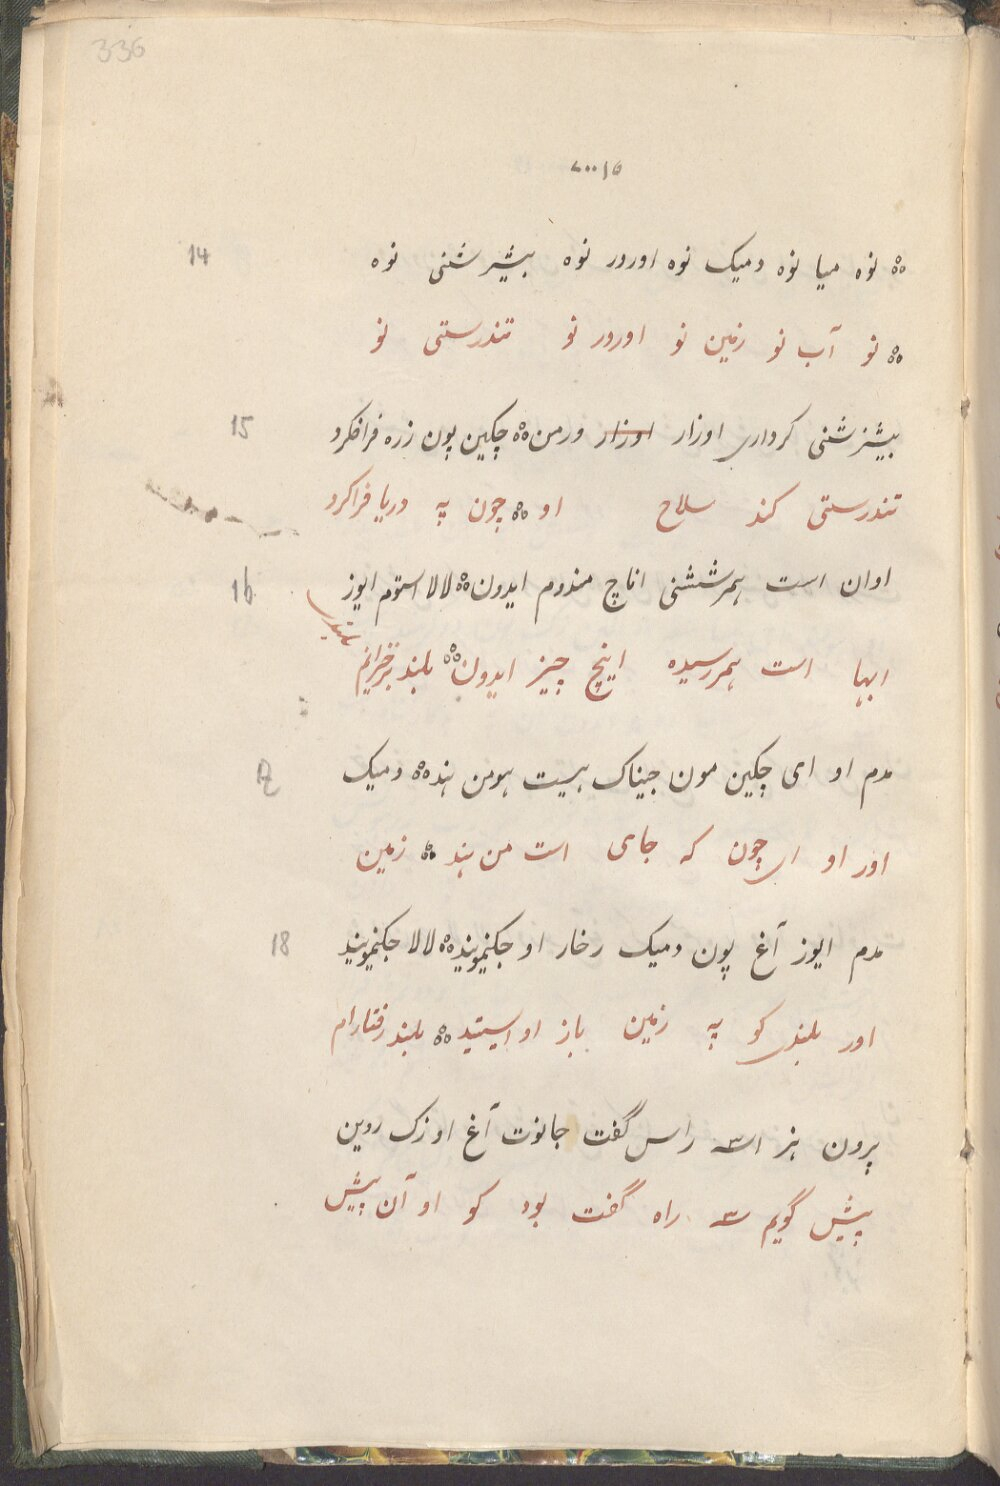 336
14 ஃ نوه میا نوه دمیک نوه اورور نوه بیشیرشنی نوه
ஃ نو آب نو زمین نو اورور نو تندرستی نو
15 بیشزشنی کرداری اوزار اوزار ورمن ஃ چکین پون زره فرافکرد
تندرستی کند سلاح او ஃ چون په دریا فراکرد
16 اوان است همرششنی اناچ مندوم ایدون ஃ لالا استوم ایوز
ابها است همررسیده اینچ چیز ایدون ஃ بلند
17 مدم او ای چکین مون جیناک هیست هومن هند ஃ دمیک
اور او ای چون که جای است من هند ஃ زمین
18 مدم ایوز آغ پون دمیک رخار او جکنمویند ஃ لالا جکنمویند
اور بلندی کو په زمین باز او ایستید ஃ بلند رفتارام
پرون هنر راس گفت جانوت آغ او زک روین
پیش گویم راه گفت بود کو او آن پیش